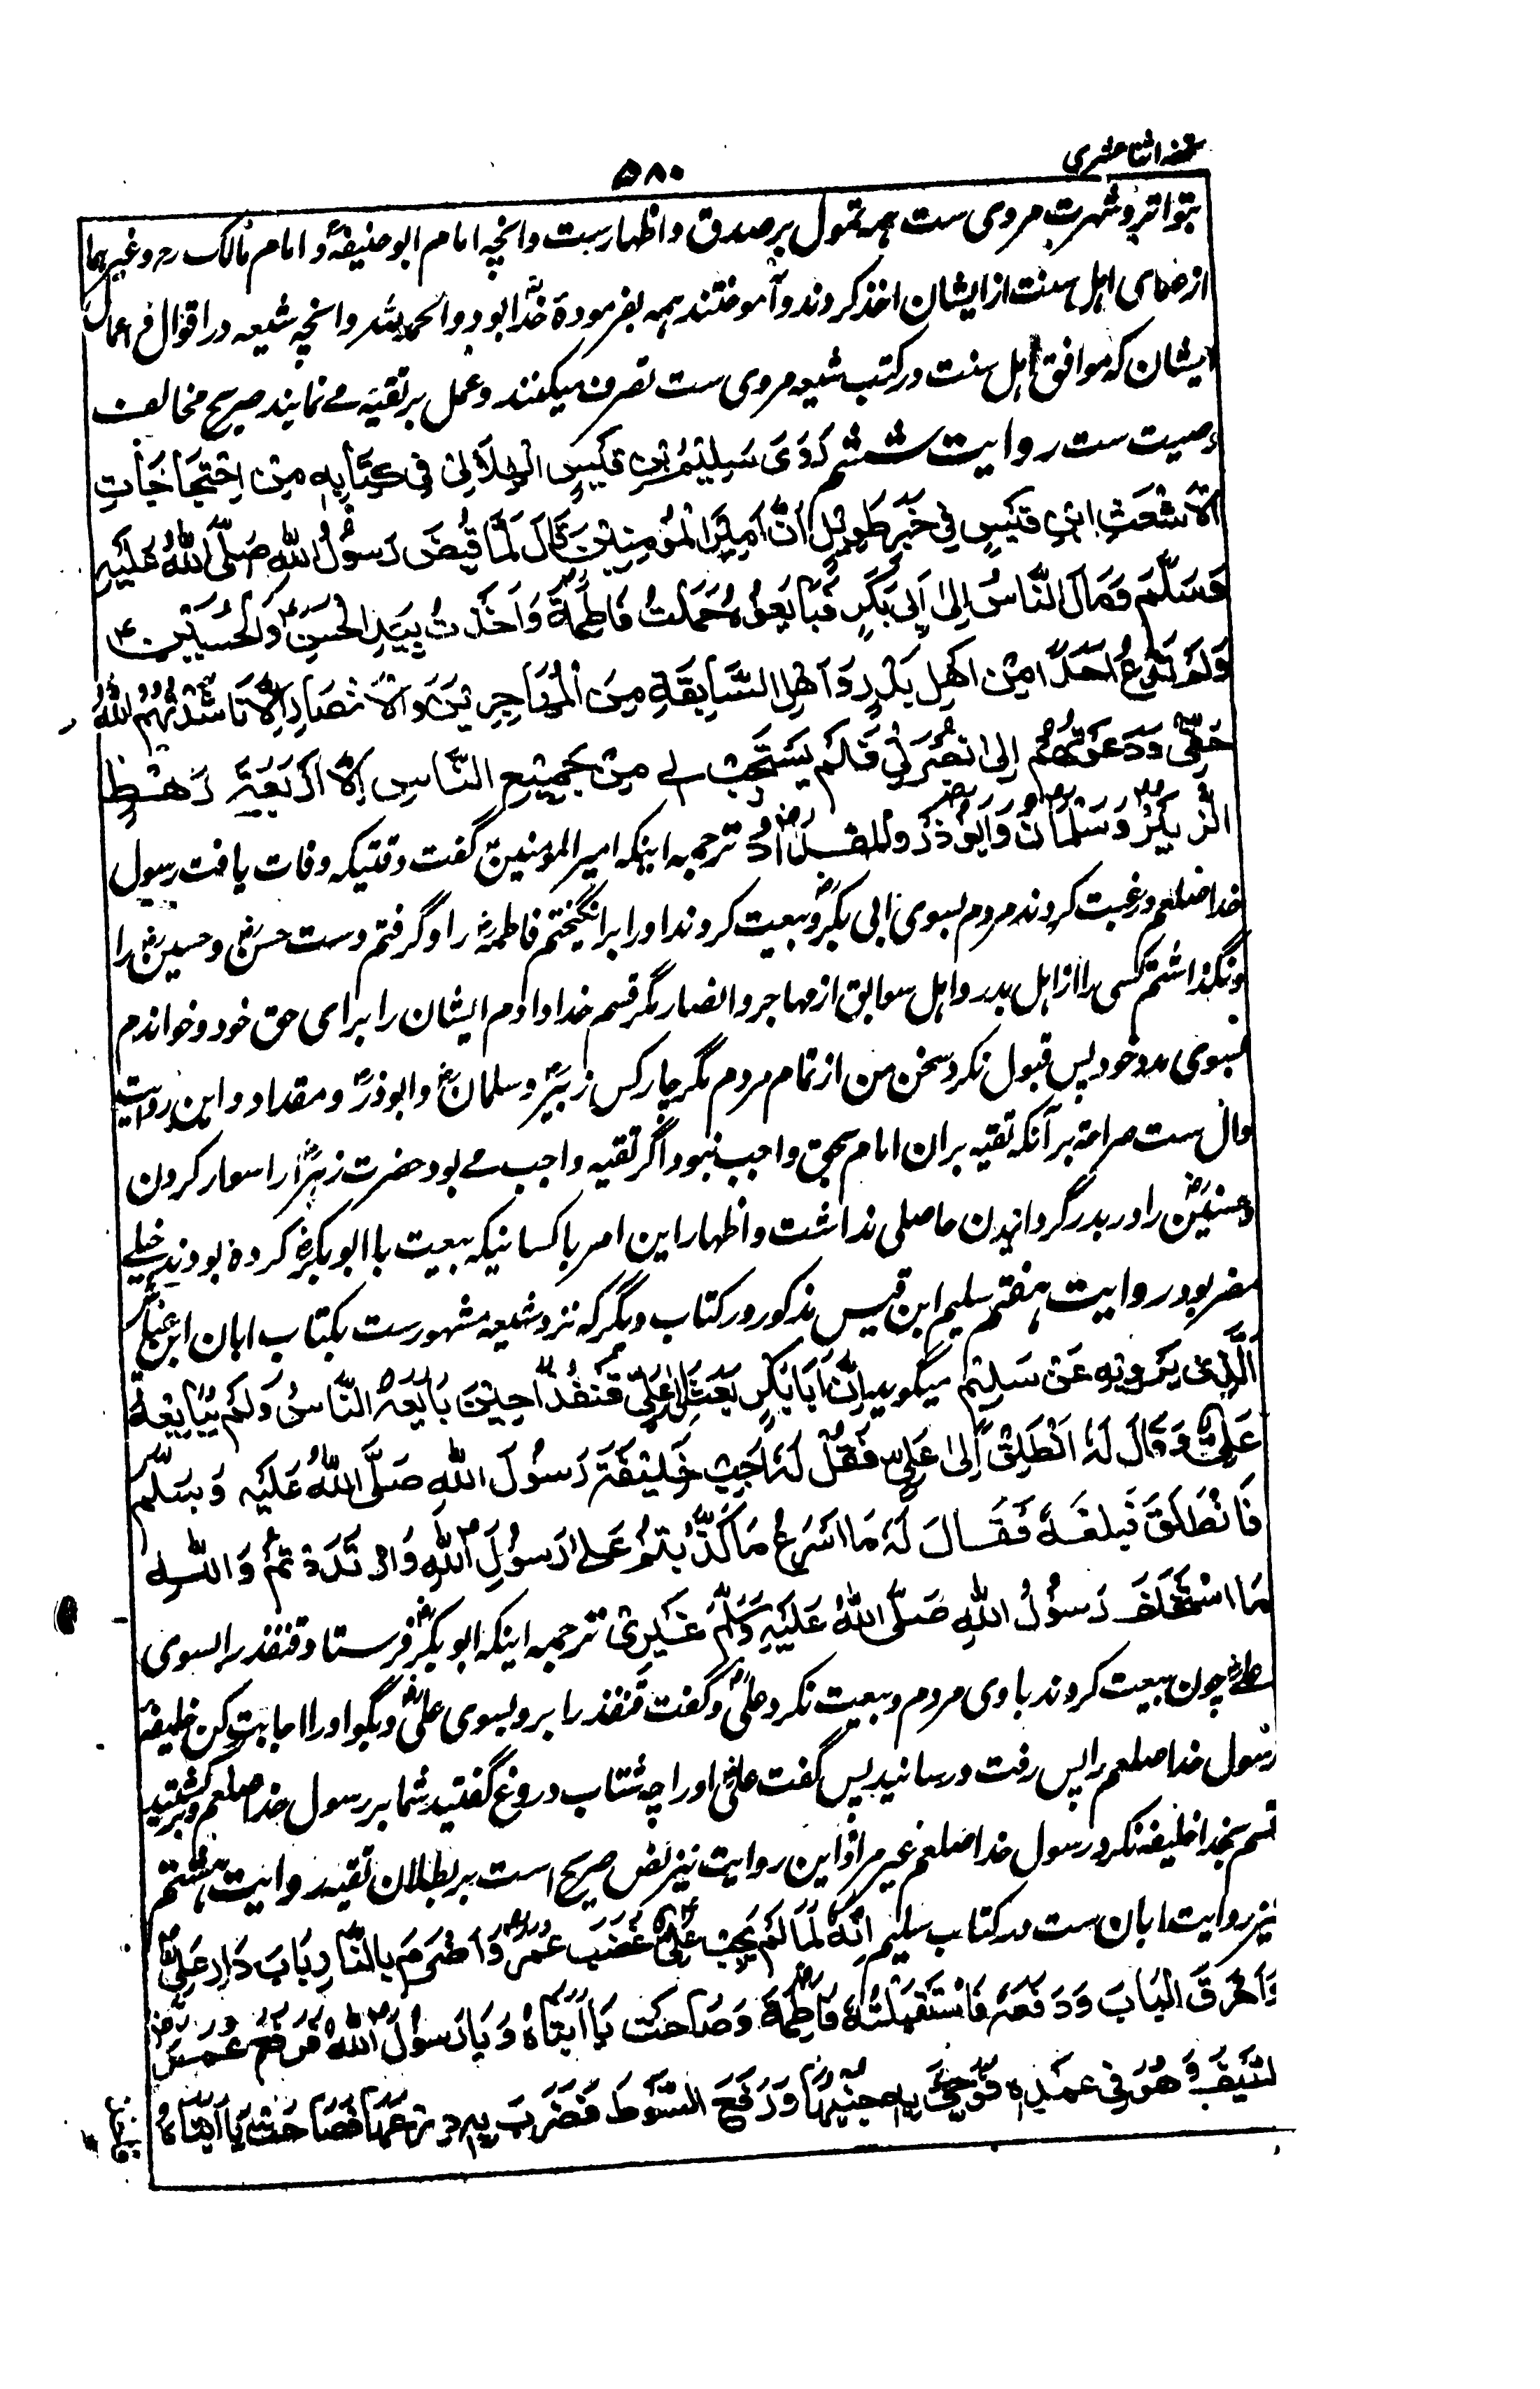 تحفه اثنا عشری
۵۸۰
بتواتر و شهرت مروی ست همه محمول بر صدق و اظهارست و انچه امام ابو حنیفهؒ و امام مالک رح و غیرهما
از علمای اهل سنت از ایشان اخذ کردند و آموختند همه بفرمودهٔ خدا بود و الحمد لله و انچه شیعه در اقوال و اعمال
ایشان که موافق اهل سنت در کتب شیعه مروی ست تصرف میکنند و عمل بر تقیه مے نمایند صریح مخالف
وصیت ست روایت ششم رَوَی سَلِیْمُ ابْنِ قَیْسٍ الْهِلَالِیْ فِیْ کِتَابِهٖ مِنْ اِحْتِجَاجَاتِ
الْاَشْعَثِ ابْنِ قَیْسٍ فِیْ خَبَرٍ طَوِیْلٍ اَنَّ اَمِیْرَ الْمُؤْمِنِیْنَ قَالَ لَمَّا قُبِضَ رَسُوْلُ اللهِ صَلَّی اللهُ عَلَیْهِ
وَسَلَّمَ وَمَالَ النَّاسُ اِلٰی اَبِیْ بَکَرٍ فَبَایَعُوْهُ حَمَلْتُ فَاطِمَةَ وَ اَخَذْتُ بِیَدِ الْحَسَنِ وَالْحُسَیْنِ
وَلَمْ نَدَعْ اَحَدًا مِنْ اَهْلِ بَدْرٍ وَ اَهْلِ السَّابِقَةِ مِنَ الْمُهَاجِرِیْنَ وَالْاَنْصَارِ اِلَّا نَاشَدْتُهُمُ اللهَ
حَقِّیْ وَدَعَوْتُهُمْ اِلٰی نُصْرَتِیْ فَلَمْ یَسْتَجِبْ لِے مِنْ جَمِیْعِ النَّاسِ اِلَّا اَرْبَعَةُ رَهْطٍ
الزُّبَیْرُ وَ سَلْمَانُ وَ اَبُوْ ذَرٍّ وَالْمِقْدَادُ ترجمه اینکه امیر المومنین گفت وقتیکه وفات یافت رسول
خدا صلعم و رغبت کردند مردم بسوی ابی بکرؓ و بیعت کردند او را برانگیختم فاطمهؓ را و گرفتم دست حسنؓ و حسینؓ را
و نگذاشتم کسی را از اهل بدر و اهل سوابق از مهاجر و انصار مگر قسم خدا دادم ایشان را برای حق خود و خواندم
بسوی مدد خود پس قبول نکرد سخن من از تمام مردم مگر چار کس زبیرؓ و سلمانؓ و ابوذرؓ و مقداد و این روایت
دال ست صراحة بر آنکه تقیه بران امام بحق واجب نبود اگر تقیه واجب مے بود حضرت زهراؓ را سوار کردن
و حسنینؓ را در بدر گردانیدن حاصلی نداشت و اظهار این امر با کسانیکه بیعت با ابوبکرؓ کرده بودند خیلے
مضر بود روایت هفتم سلیم ابن قیس مذکور در کتاب دیگر که نزد شیعه مشهورست بکتاب ابان ابن عیاش
اَلَّذِیْ یَرْوِیْهِ عَنْ سَلِیْمٍ میگوید اِنَّ اَبَا بَکْرٍ بَعَثَ اِلٰی عَلِیٍّ قُنْفُذًا حِیْنَ بَایَعَهُ النَّاسُ وَلَمْ یُبَایِعْهُ
عَلِیٌّ وَقَالَ لَهٗ اَنْطَلِقْ اِلٰی عَلِیٍّ فَقُلْ لَهٗ اَجِبْ خَلِیْفَةَ رَسُوْلِ اللهِ صَلَّی اللهُ عَلَیْهِ وَسَلَّمَ
فَانْطَلَقَ فَبَلَغَهٗ فَقَالَ لَهٗ مَا اَسْرَعَ مَا کَذَبْتُمْ عَلٰی رَسُوْلِ اللهِ وَارْتَدَدْتُمْ وَاللهِ
مَا اسْتَخْلَفَ رَسُوْلُ اللهِ صَلَّی اللهُ عَلَیْهِ وَسَلَّمَ غَیْرِیْ ترجمه اینکه ابوبکرؓ فرستاد قنفذ را بسوی
علیؓ چون بیعت کردند با وی مردم و بیعت نکرد علیؓ و گفت قنفذ را برو بسوی علیؓ و بگو او را اجابت کن خلیفهٔ
رسول خدا صلعم را پس رفت و رسانید پس گفت علیؓ او را چه شتاب دروغ گفتید شما بر رسول خدا صلعم و برگشتید
قسم بخدا خلیفه نکرد رسول خدا صلعم غیر مرا و این روایت نیز نص صریح است بر بطلان تقیه روایت هشتم
نیز روایت ابان ست در کتاب سلیم اَنَّهٗ لَمَّا لَمْ یُجِبْ عَلِیٌّ غَضَبَ عُمَرُ وَ اَضْرَمَ بِالنَّارِ بَابَ دَارِ عَلِیٍّ
وَ اَحْرَقَ الْبَابَ وَدَفَعَهٗ فَاسْتَقْبَلَتْهُ فَاطِمَةُ وَصَاحَتْ یَا اَبَتَاهُ وَیَا رَسُوْلَ اللهِ فَرَفَعَ عُمَرُ
السَّیْفَ وَ هُوَ فِیْ غِمْدِهٖ فَوَجِیَٔ بِهٖ جَنْبَهَا وَرَفَعَ السَّوْطَ فَضَرَبَ بِهٖ دِرْعَهَا فَصَاحَتْ یَا اَبَتَاهُ